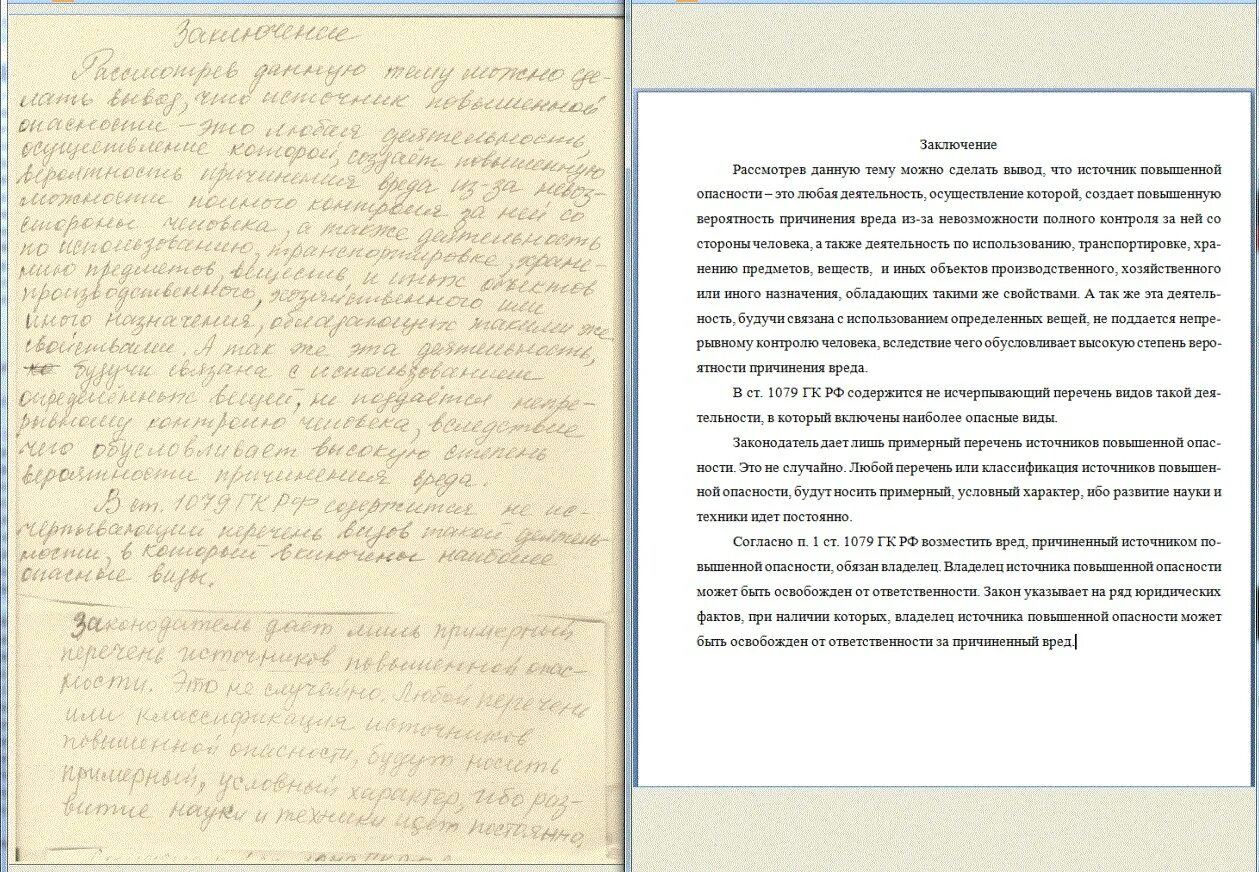 Заключение
Рассмотрев данную тему можно сде-
лать вывод, что источник повышенной
опасности – это любая деятельность,
осуществление которой, создаёт повышенную
вероятность причинения вреда из-за невоз-
можности полного контроля за ней со
стороны человека, а также деятельность
по использованию, транспортировке, хране-
нию предметов, веществ, и иных объектов
производственного, хозяйственного или
иного назначения, обладающих такими же
свойствами. А так же эта деятельность,
будучи связана с использованием
определённых вещей, не поддаётся непре-
рывному контролю человека, вследствие
чего обусловливает высокую степень
вероятности причинения вреда.
В ст. 1079 ГК РФ содержится не ис-
черпывающий перечень видов такой деятель-
ности, в который включены наиболее
опасные виды.
Законодатель даёт лишь примерный
перечень источников повышенной опас-
ности. Это не случайно. Любой перечень
или классификация источников
повышенной опасности, будут носить
примерный, условный характер, ибо раз-
витие науки и техники идёт постоянно.
Заключение
Рассмотрев данную тему можно сделать вывод, что источник повышенной
опасности – это любая деятельность, осуществление которой, создает повышенную
вероятность причинения вреда из-за невозможности полного контроля за ней со
стороны человека, а также деятельность по использованию, транспортировке, хра-
нению предметов, веществ, и иных объектов производственного, хозяйственного
или иного назначения, обладающих такими же свойствами. А так же эта деятель-
ность, будучи связана с использованием определенных вещей, не поддается непре-
рывному контролю человека, вследствие чего обусловливает высокую степень веро-
ятности причинения вреда.
В ст. 1079 ГК РФ содержится не исчерпывающий перечень видов такой дея-
тельности, в который включены наиболее опасные виды.
Законодатель дает лишь примерный перечень источников повышенной опас-
ности. Это не случайно. Любой перечень или классификация источников повышен-
ной опасности, будут носить примерный, условный характер, ибо развитие науки и
техники идет постоянно.
Согласно п. 1 ст. 1079 ГК РФ возместить вред, причиненный источником по-
вышенной опасности, обязан владелец. Владелец источника повышенной опасности
может быть освобожден от ответственности. Закон указывает на ряд юридических
фактов, при наличии которых, владелец источника повышенной опасности может
быть освобожден от ответственности за причиненный вред.